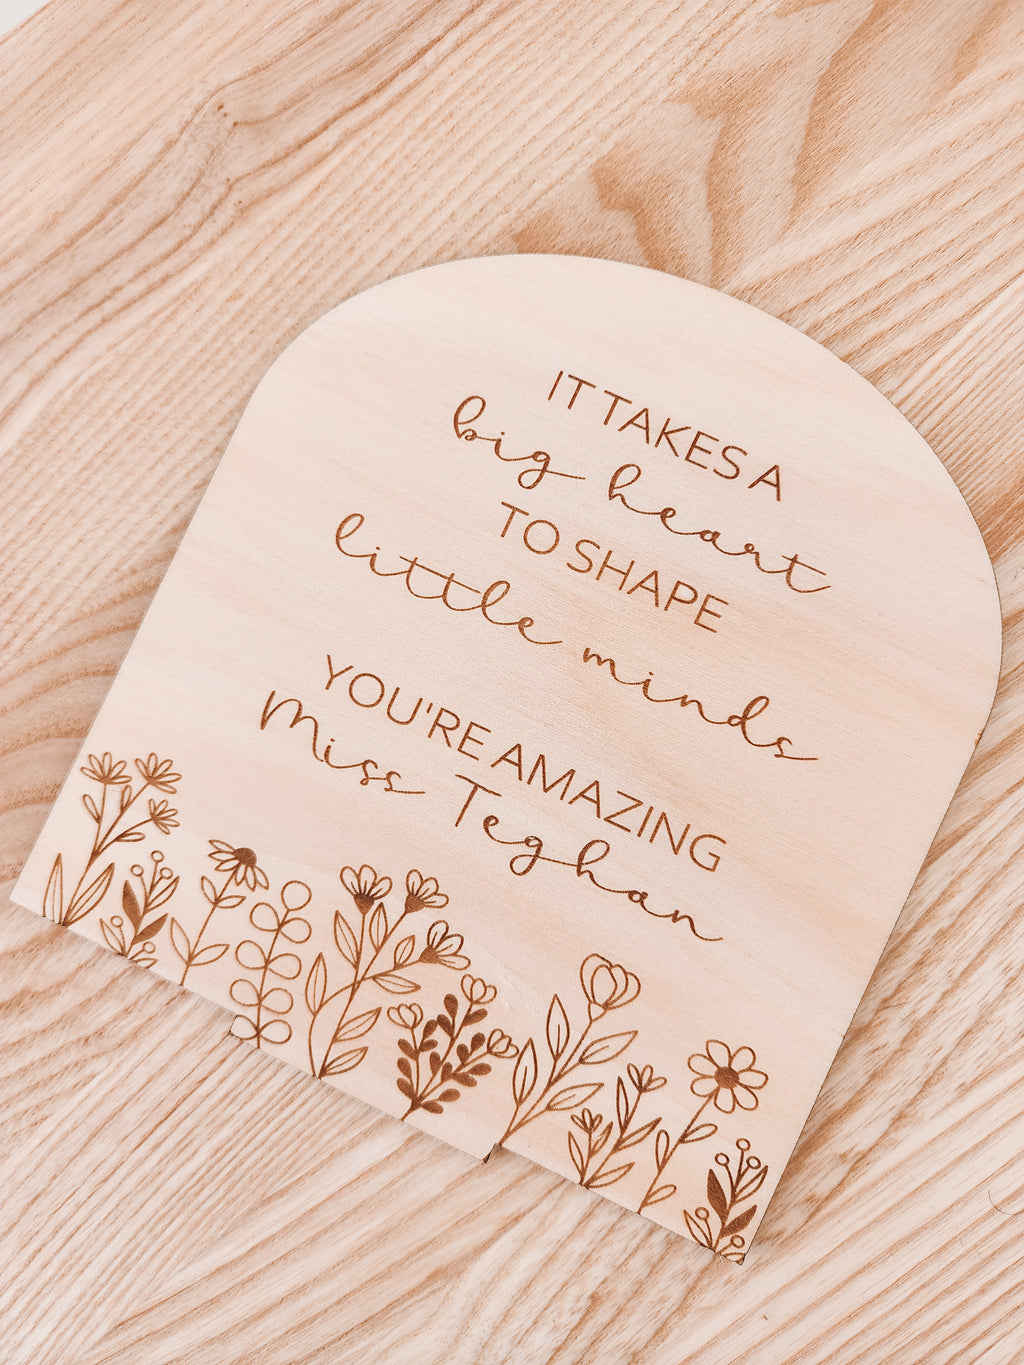 IT TAKES A
big heart
TO SHAPE
little minds
YOU'RE AMAZING
Miss Teghan